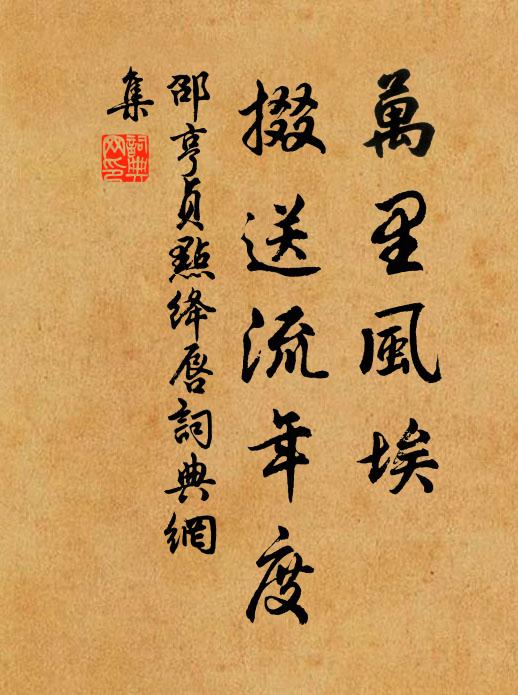 萬里風埃
掇送流年度
邵亨貞點絳唇詞典網
集
詞典網印